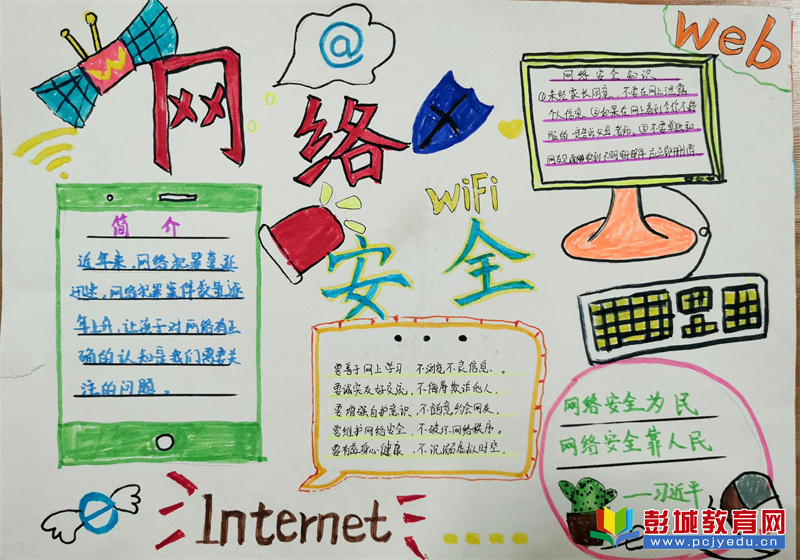 Web
@
网络安全
WiFi
网络安全知识
①未经家长同意，不要在网上泄露
个人信息。②如果在网上看到令你不舒
服的
简介
近年来，网络犯罪蔓延
迅速，网络犯罪案件数量逐
年上升，让孩子对网络有正
确的认知是我们需要关
注的问题。
要善于网上学习 不浏览不良信息。
要诚实友好交流 不侮辱欺诈他人。
要增强自护意识 不随意约会网友。
要维护网络安全 不破坏网络秩序。
要有益身心健康 不沉溺虚拟时空
网络安全为民
网络安全靠人民
——习近平
Internet
彭城教育网
www.pcjyedu.cn